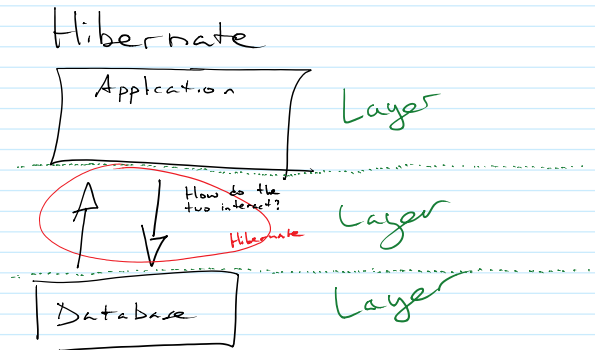 Hibernate
Application
Layer
How do the
two interact?
Hibernate
Layer
Database
Layer